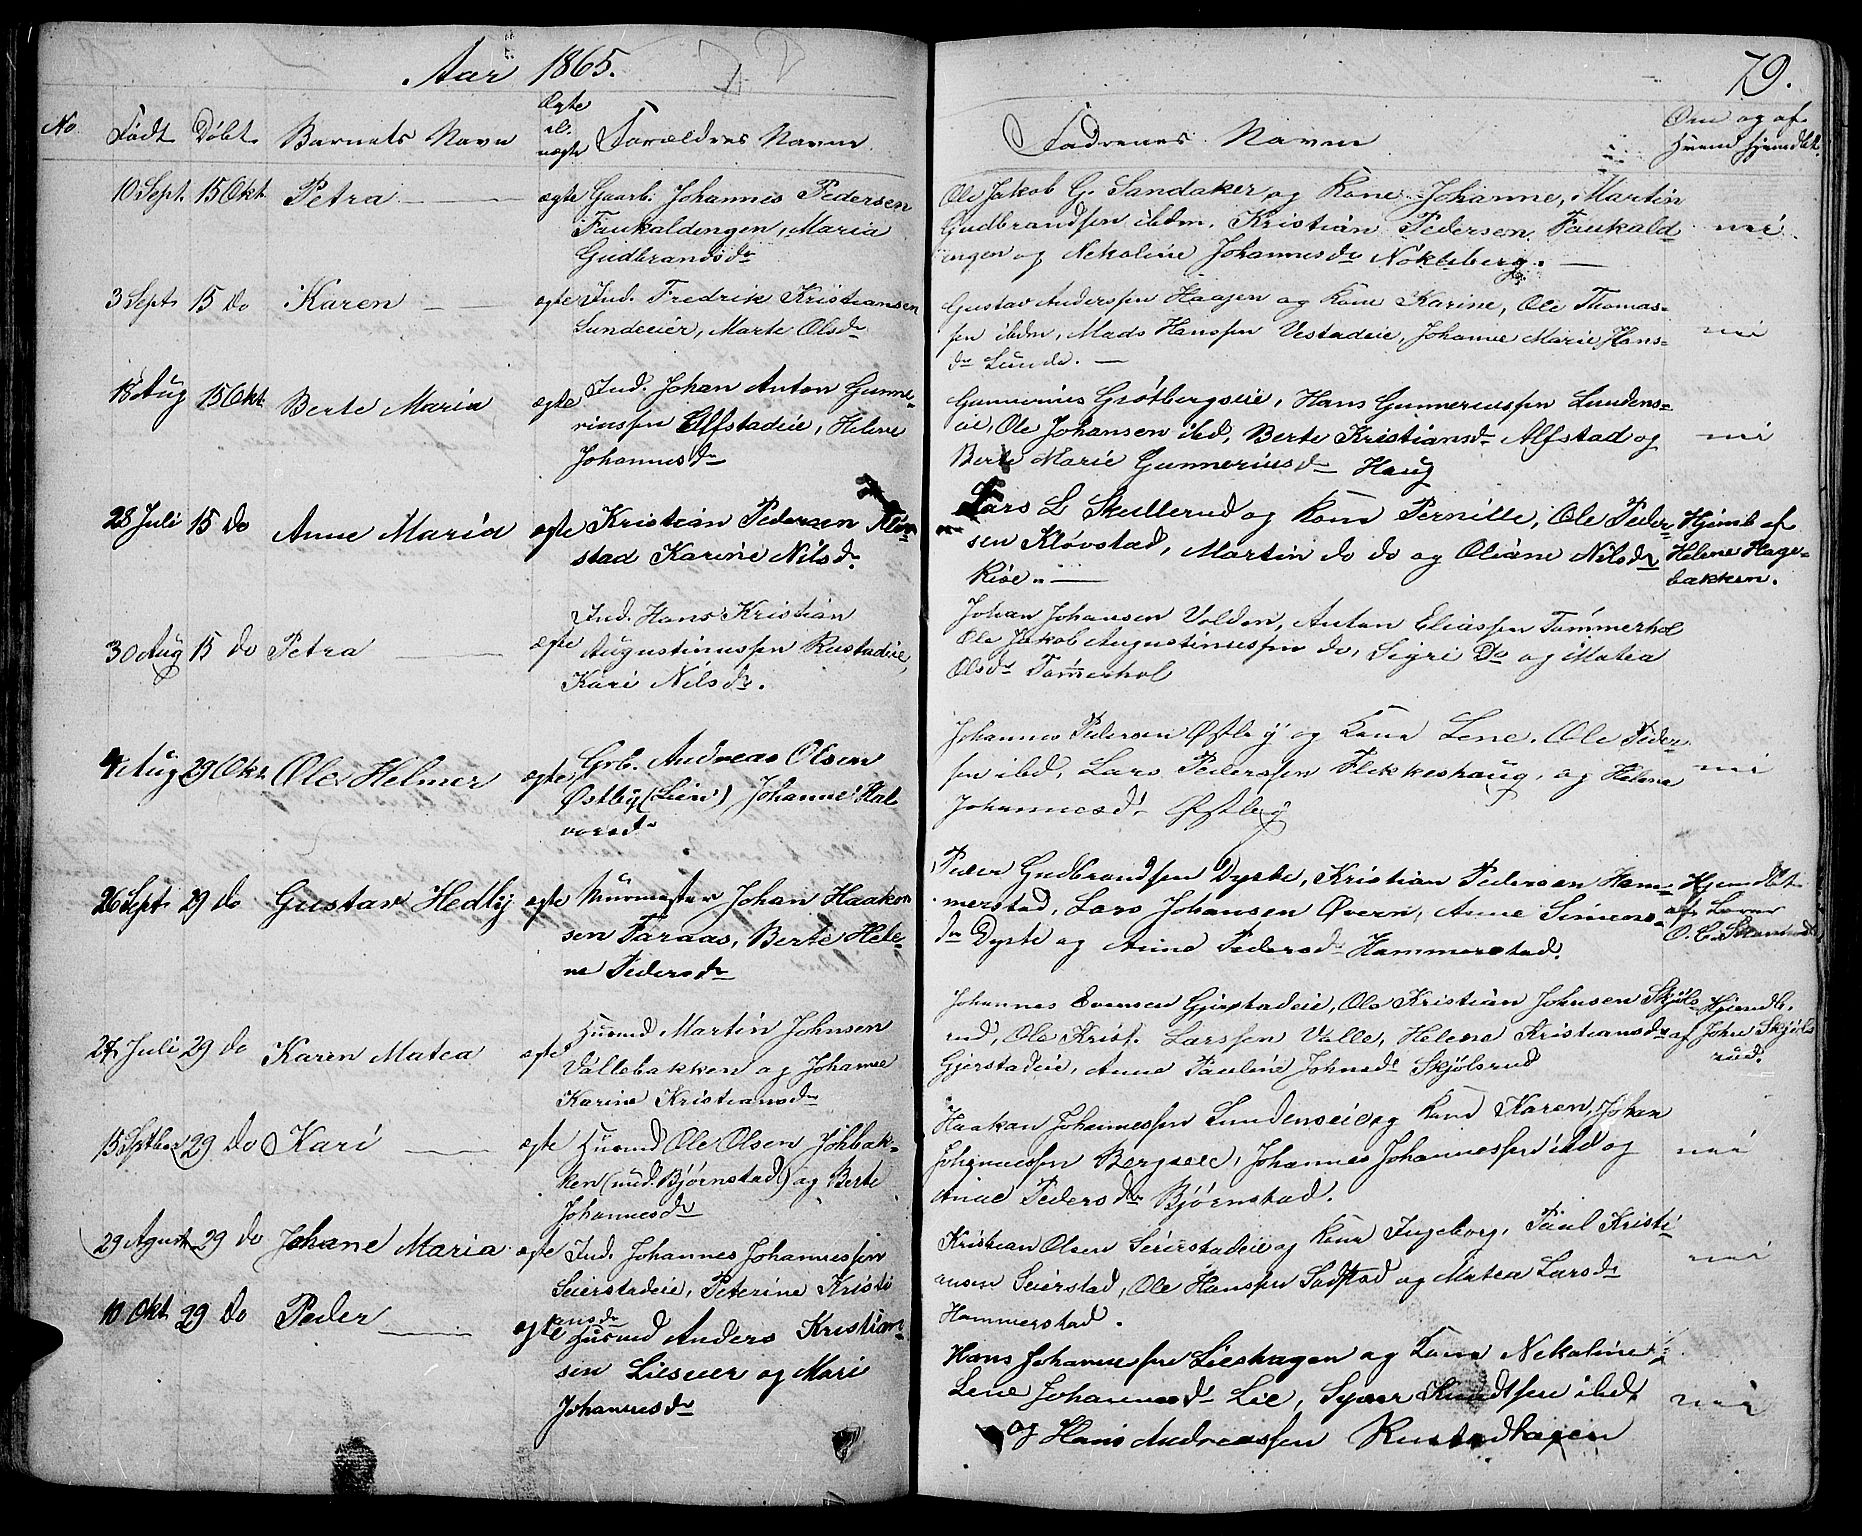 Aar 1865.
79.
No. Født Døbt. Barnets Navn Ægte el. uægte Forældres Navne. Faddrenes Navne Om og af Hvem hjemdbt.
10 Sept. 15 Okt. Petra ægte Gaarb. Johannes Pedersen
Faukaldengen, Maria
Gudbrandsdr
Ole Jakob G. Sandaker og Kone Johanne, Martin
Gudbrandsen ibdm. Kristian Pedersen Faukald
engen og Nekoline Johannesdr Nøkleberg. nei
3 Sept 15 do Karen ægte Ind. Fredrik Kristiansen
Lundeeier, Marte Olsdr
Gustav Anderssen Haajen og Kone Karine, Ole Thomas-
sen ibdm, Mads Hanssen Vestadeie, Johanne Marie Hans-
dr Lunde. nei
18 Aug 15 Okt. Berte Maria ægte Ind. Johan Anton Gunne-
riussen Alfstadeie, Helene
Johannesdr
Gunnerius Grøtbergseie, Hans Gunneriussen Lundens-
eie, Ole Johansen ibd, Berte Kristiansdr Alfstad og
Berte Marie Gunneriusdr Haug nei
28 Juli 15 do Anne Maria ægte Kristian Pedersen Kløv-
stad Karine Nilsdr
Lars L Skullerud og Kone Pernille, Ole Peder-
sen Kløvstad, Martin do do og Oliane Nilsdr
Rise.
Hjemb af
Helene Hage-
bakken.
30 Aug 15 do Petra ægte Ind. Hans Kristian
Augustinussen Rustadeie,
Kari Nilsdr.
Johan Johansen Volden, Anton Eliassen Tømmerhol
Ole Jakob Augustinussen do, Sigri Do og Matea
Olsdr Tømerhol
4 Aug 29 Okt. Ole Helmer ægte Grb. Andreas Olsen
Østby (Lien) Johanne Hal
vorsdr
Johannes Pedersen Østby og Kone Lene. Ole Peder-
sen ibd, Lars Pederssen Flekkeshaug, og Helene
Johannesdr Østby nei
26 Sept. 29 do Gustav Hedly ægte Murmester Johan Haakon
sen Paraas, Berte Hele-
ne Pedersdr
Peder Gudbrandsen Dyste, Kristian Pedersen Ham-
merstad, Lars Johansen Øvern, Anne Simens-
dr Dyste og Anne Pedersdr Hammerstad.
Hjemdbt
af Lærer
27 Juli 29 do Karen Matea ægte Husmd Martin Johnsen
Vallebakken og Johanne
Karine Kristiansdr
Johannes Evensen Gjerstadeie, Ole Kristian Johnsen Skjøls
rud, Ole Krist. Larssen Valle, Helene Kristiansdr
Gjerstadeie, Anne Pauline Johnsdr Skjølsrud
Hjemdb.
af John Skjøls
rud.
15 Septber 29 do Kari ægte Husmd Ole Olsen Johbak-
ken (und. Bjørnstad) og Berte
Johannesdr
Haakan Johannessen Lundenseie og Kone Karen, Johan
Johannessen Bergseie, Johannes Johannessen ibd og
Anne Pedersdr Bjørnstad. nei
29 August 29 do Johane Maria ægte Ind. Johannes Johannessen
Seierstadeie, Peterine Kristi
ansdr
Kristian Olsen Seierstadeie og Kone Ingeborg, Paul Kristi-
ansen Seierstad, Ole Hanssen Sadstad og Matea Larsdr
Hammerstad. nei
10 Okt. 29 do Peder ægte Husmd Anders Kristian-
sen Lieseier og Mari
Johannesdr
Hans Johannessen Lieshagen og Kone Nekoline
Lene Johannesdr Lie, Syver Knudtsen ibd.
og Hans Andreassen Rustadhagen nei